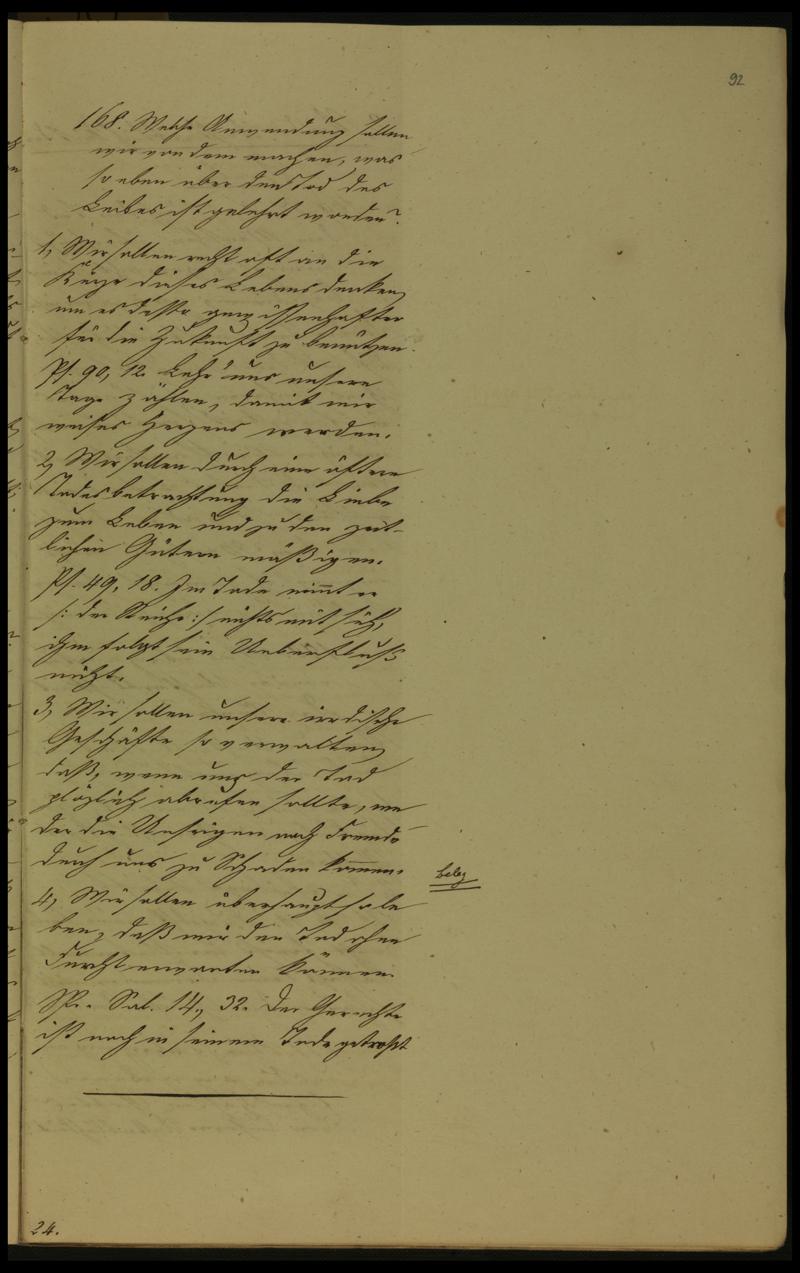 92
168. Welche Anwendung sollen
wir von dem machen, was
so eben über den Tod des
Leibes ist gelehrt worden?
1, Wir sollen recht oft an die
Kürze dieses Lebens denken,
um es desto gewissenhafter
für die Zukunft zu benützen.
Ps. 90, 12. Lehr' uns unsere
Tage zählen, damit wir
weises Herzens werden.
2, Wir sollen durch eine öftere
Todesbetrachtung die Liebe
zum Leben und zu den zeit-
lichen Gütern mäßigen.
Ps. 49, 18. Im Tode nimt er
/: der Reiche :/ nichts mit sich,
ihm folgt sein Ueberfluß
nicht.
3, Wir sollen unsere irrdische
Geschäfte so verwalten,
daß, wenn uns der Tod
plözlich abrufen sollte, we
der die Unsrigen noch Fremde
durch uns zu Schaden komen.
beleg
4, Wir sollen überhaupt so le
ben, daß wir den Tod ohne
Furcht erwarten können.
Sp. Sal. 14, 32. Der Gerechte
ist noch in seinem Tode getrost
24.